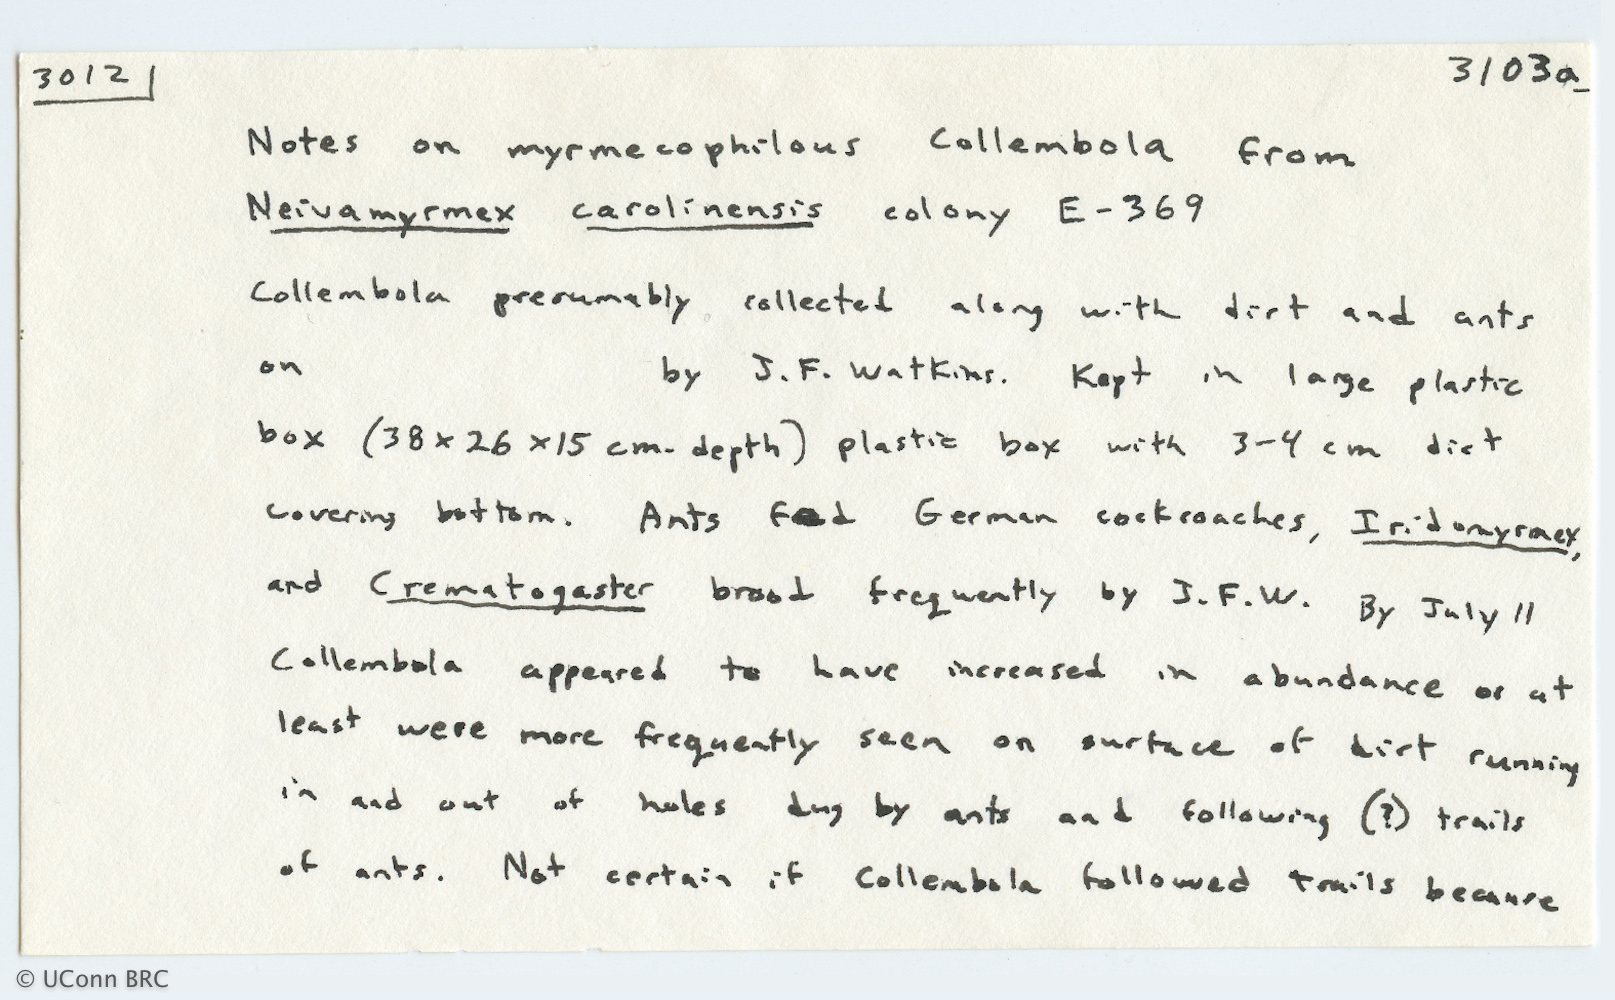 3012
3103a
Notes on myrmecophilous Collembola from
Neivamyrmex carolinensis colony E-369
Collembola presumably collected along with dirt and ants
on by J.F. Watkins. Kept in large plastic
box (38 x 26 x 15 cm-depth) plastic box with 3-4 cm dirt
covering bottom. Ants fed German cockroaches, Iridomyrmex,
and Crematogaster brood frequently by J.F.W. By July 11
Collembola appeared to have increased in abundance or at
least were more frequently seen on surface of dirt running
in and out of holes dug by ants and following (?) trails
of ants. Not certain if Collembola followed trails because
© UConn BRC